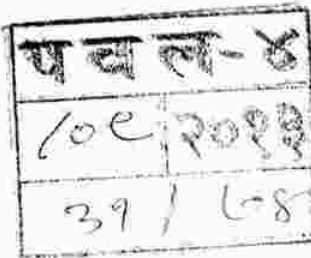 पवल-४
१०९ २०१३
३१ / ७४